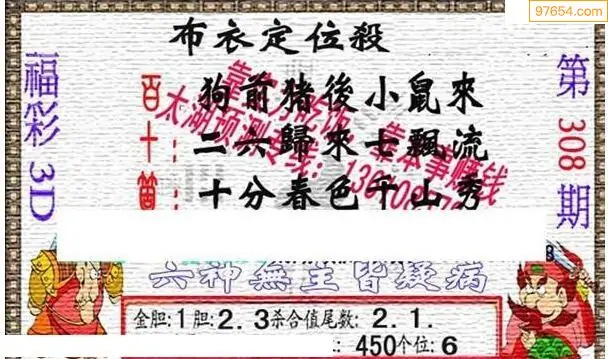 97654.com
布衣定位殺
福彩3D
第308期
百:狗前猪後小鼠來
十:二六歸來七飄流
個:十分春色千山秀
六神無主皆疑病
金胆:1胆:2.3杀合值尾数:2.1.
:450个位:6